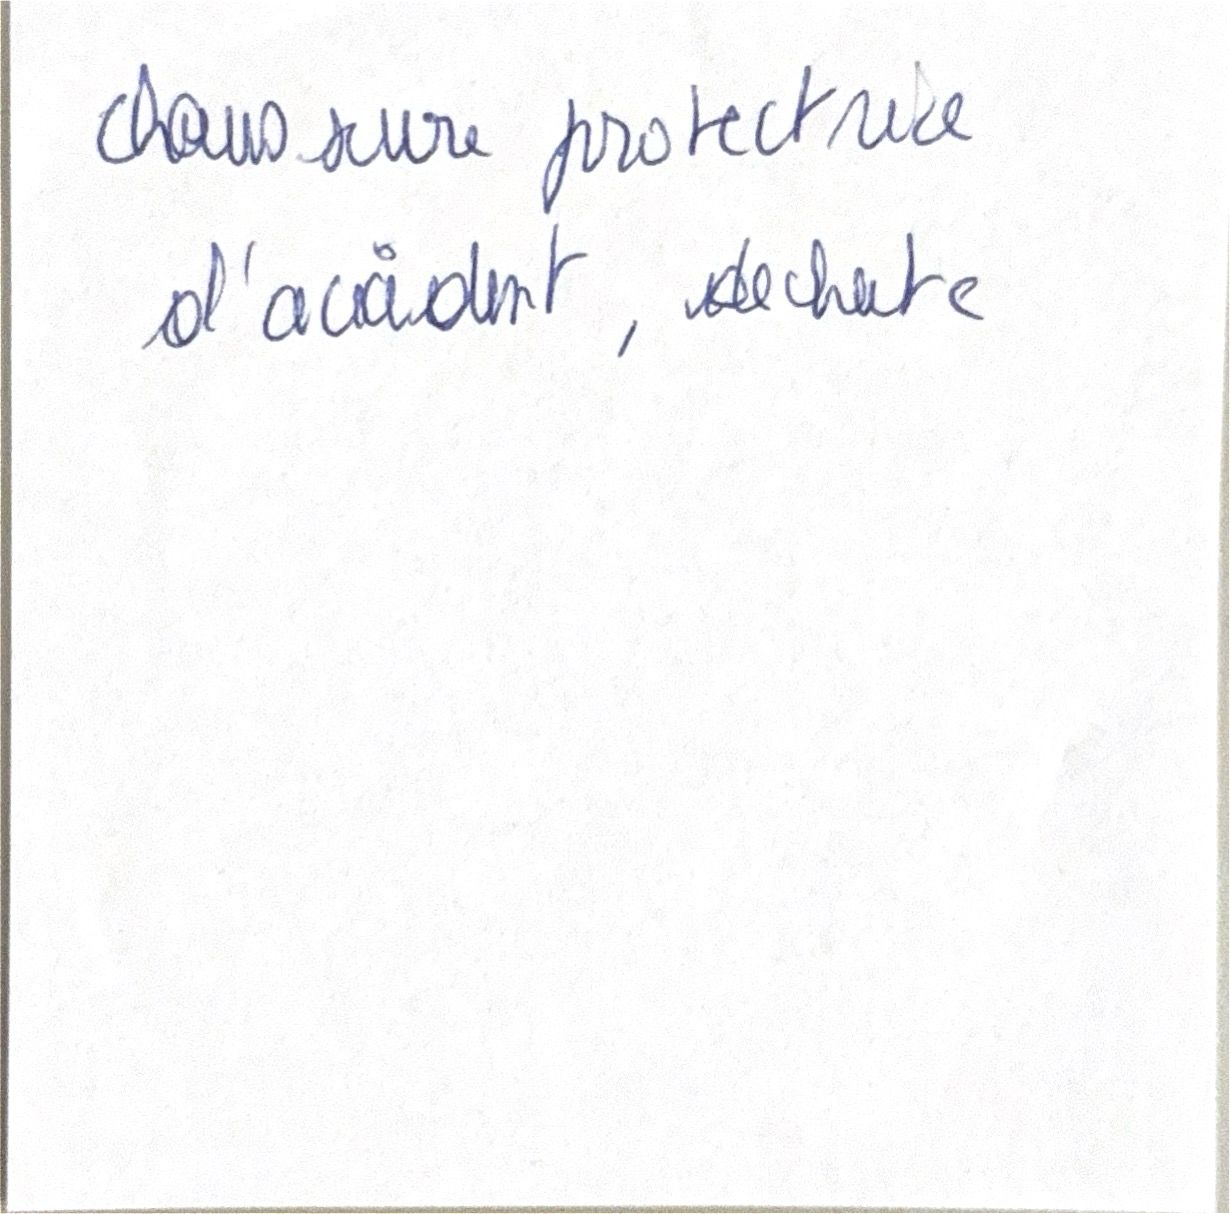 chaussure protectrice
d'accident, de chute